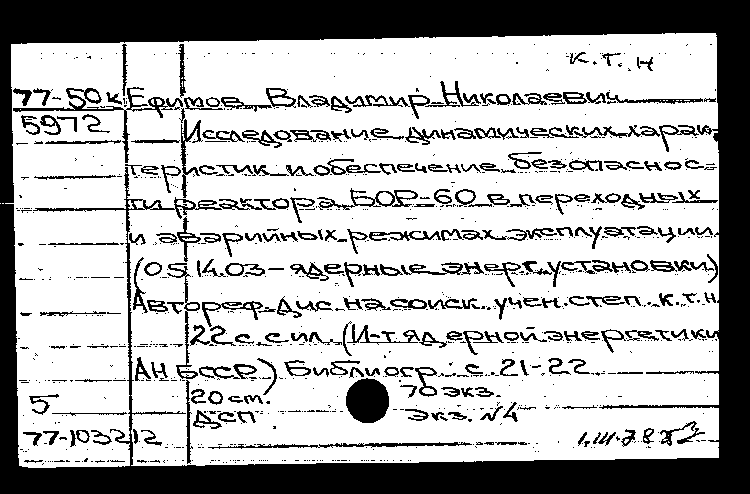 к.т.н
77-50к Ефимов, Владимир Николаевич
5972 Исследование динамических харак-
теристик и обеспечение безопаснос-
ти реактора БОР-60 в переходных
и аварийных режимах эксплуатации.
(05.14.03-ядерные энерг. установки)
Автореф. дис. на соиск. учен. степ. к.т.н.
22 с. с ил. (И-т ядерной энергетики
АН БССР) Библиогр.: с. 21-22
5 20 ст. 70 экз.
ДСП экз. №4
77-103212 1.III.78